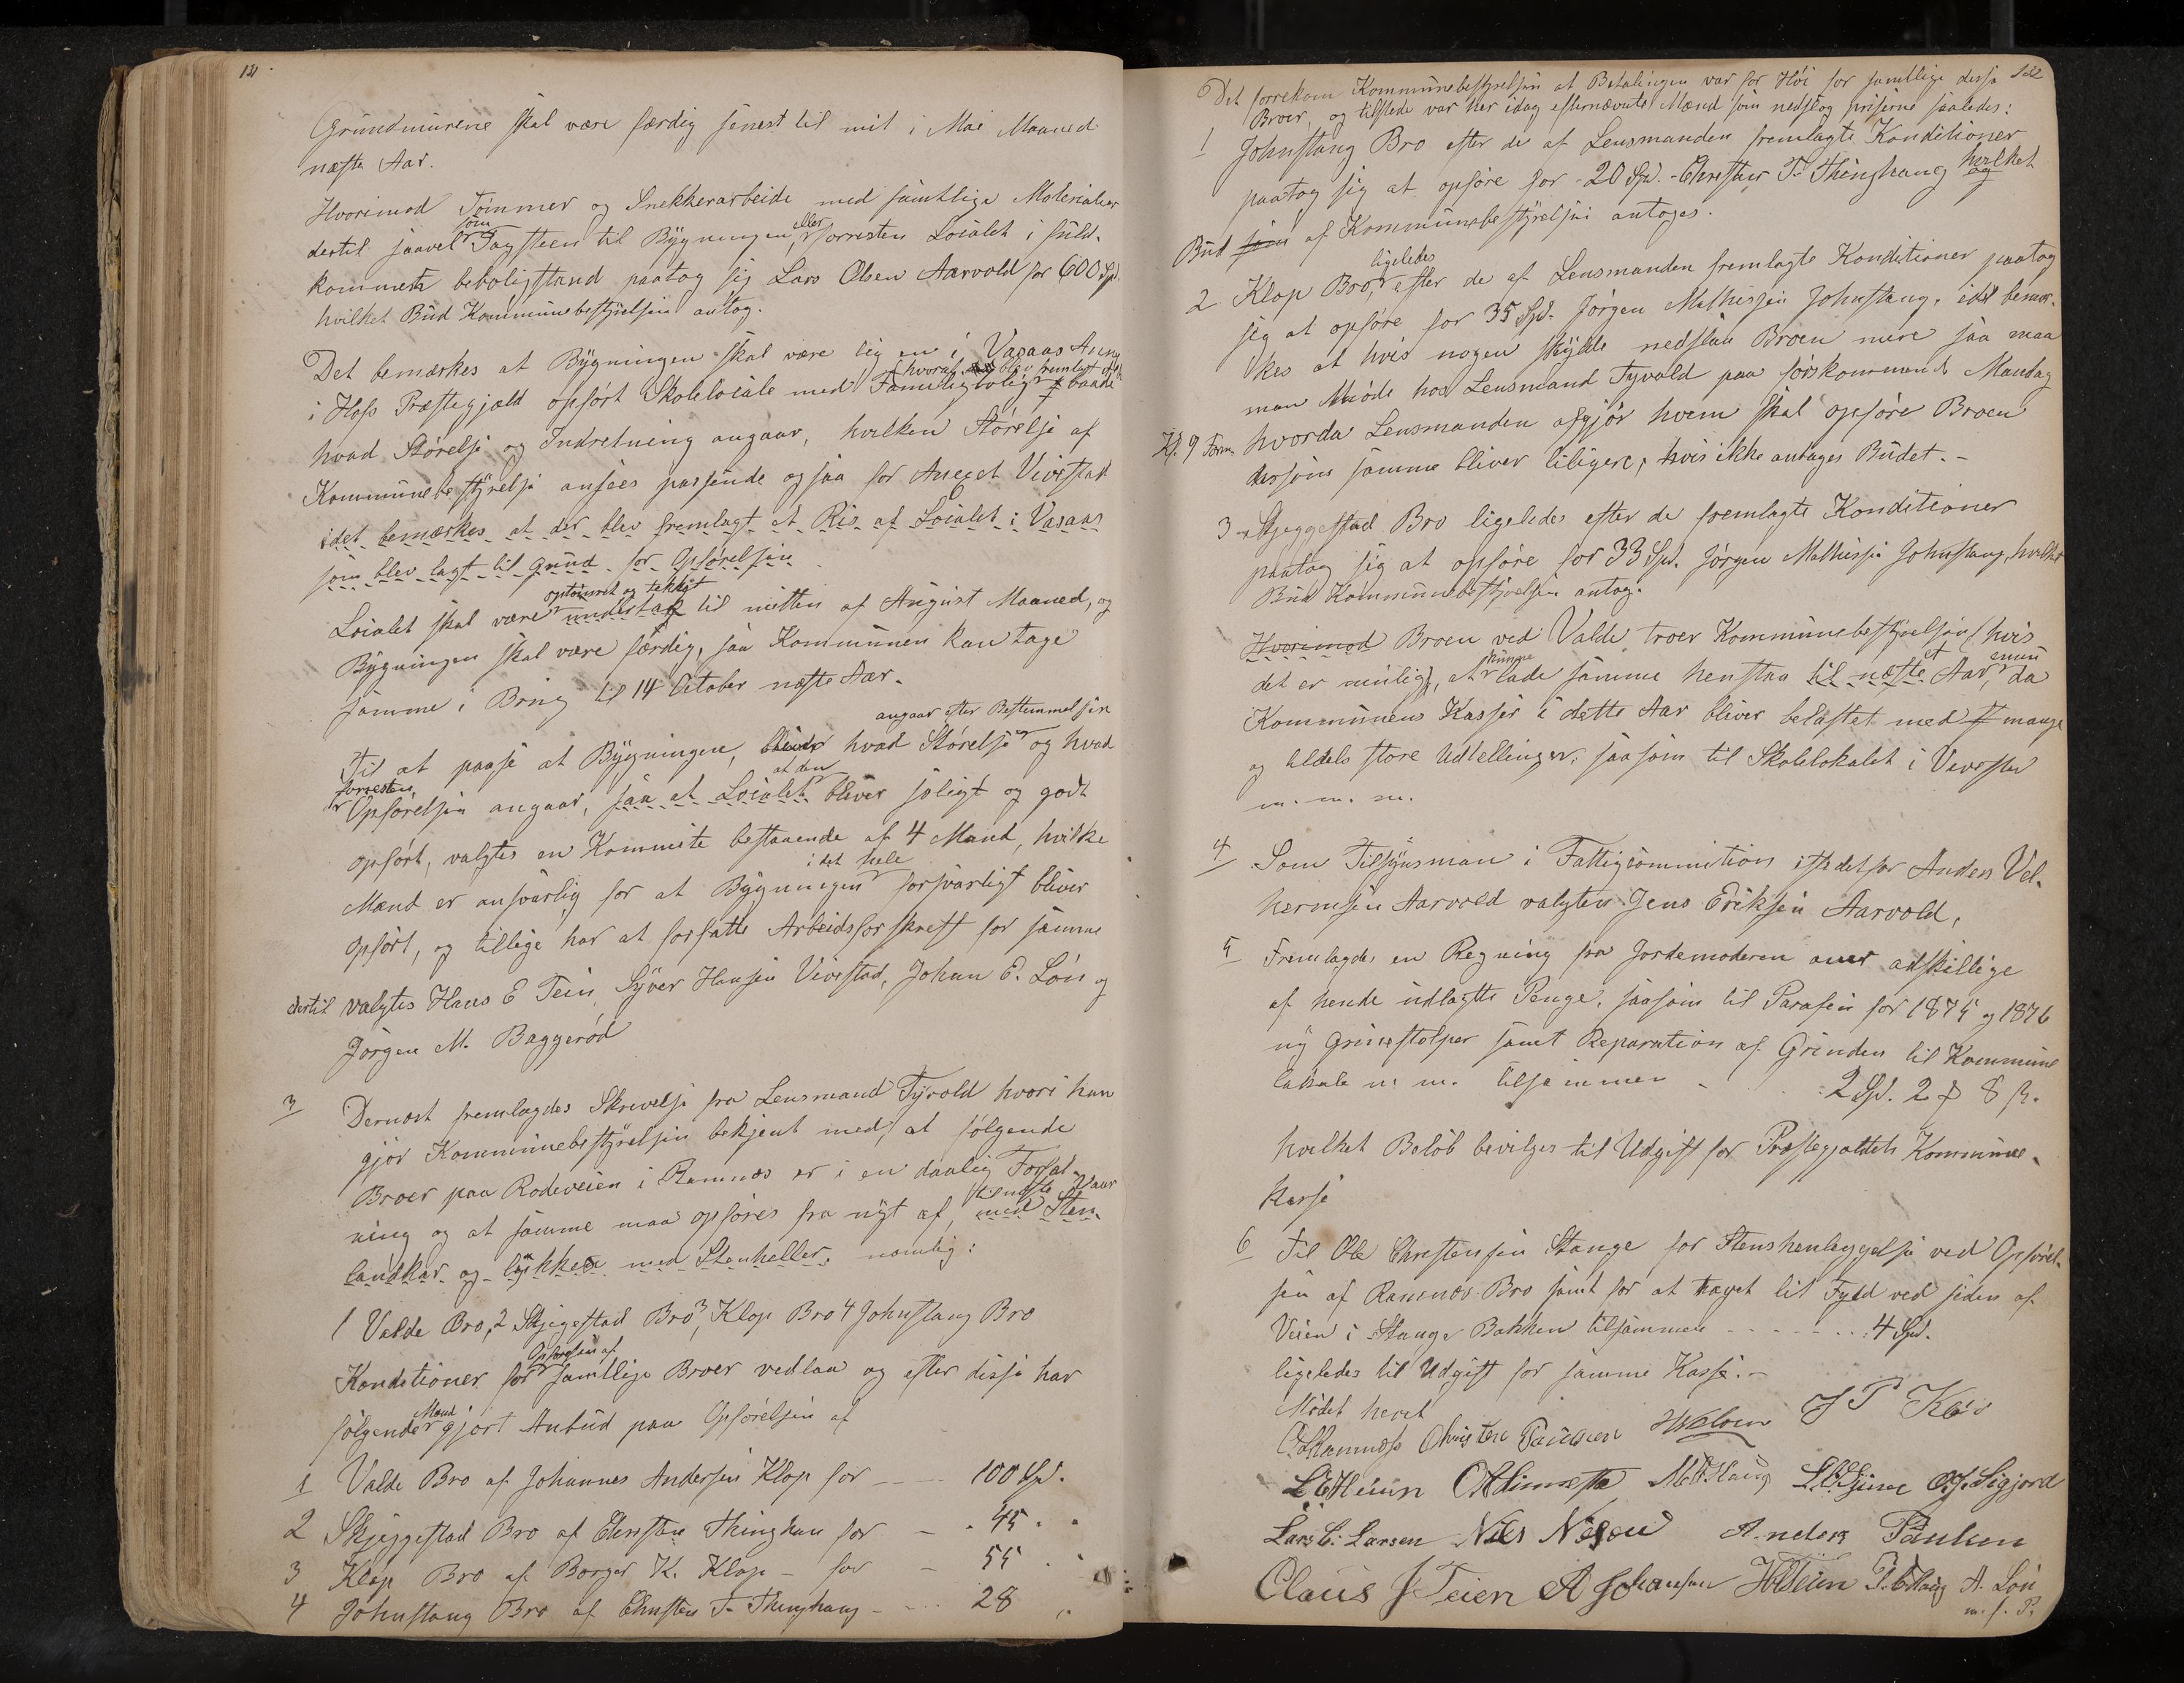 121
Grundmurene skal være færdig senest til mit i Mai Maaned
næste Aar.
Hvorimod Tømmer og Snekkerarbeide med samtlige Materialier
dertil saavel som Tagsteen til Bygningen, eller forresten Localet i fuld-
kommen beboligstand paatog sig Lars Olsen Aarvold for 600 Spd.
hvilket Bud Kommunebestyrelsen antog.
Det bemærkes at Bygningen skal være lig en i Vasaas Anex
i Hofs Præstegjæld opført Skolelocale med Familiebolig hvoraf blev fremlagt baade
hvad Størelse og Indretning angaar, hvilken Størelse af
Kommunebestyrelse ansees passende ogsaa for Anexet Vivestad
idet bemærkes at der blev fremlagt et Ris af Localet i Vasaas
som blev lagt til Grund for Opførelsen
Localet skal være optømret og tækket undertag til mitten af August Maaned, og
Bygningen skal være færdig, saa Kommunen kan tage
samme i Brug til 14 October næste Aar.
Til at paase at Bygningen, hvad Størelse angaar efter Bestemmelsen og hvad
forresten Opførelsen angaar, saa at Localet at den bliver soligt og godt
opført, valgtes en Kommite bestaaende af 4 Mand, hvilke
Mænd er ansvarlig for at Bygningen i det hele forsvarligt bliver
opført, og tillige har at forfatte Arbeidsforskreft for samme
dertil valgtes Hans E Tein, Syver Hansen Vivestad, Johan E. Løn og
Jørgen M. Baggerød
3 Dernæst fremlagdes Skrivelse fra Lensmand Tyvold hvori han
gjør Kommunebestyrelsen bekjent med, at følgende
Broer paa Rodeveien i Ramnæs er i en daarlig Forfat-
ning og at samme maa opføres fra nyt af, til næste Vaar med Sten-
landkar og lukkes med Stenheller, nemlig:
1 Valde Bro, 2 Skjegestad Bro, 3 Klop Bro 4 Johnstang Bro
Konditioner for Opførelsen af samtlige Broer vedlaa og efter disse har
følgende Mænd gjort Anbud paa Opførelsen af
1 Valde Bro af Johannes Andersen Klop for - 100 Spd.
2 Skjeggestad Bro af Christen Thinghau for - 45 "
3 Klop Bro af Borger K. Klop - for - 55 "
4 Johnstang Bro af Christen T. Thinghaug - 28 "
122
Det forrekom Kommunebestyrelsen at Betalingen var for Høi for samtlige disse
Broer, og tilstede var her idag efternævnte Mænd som nedslog priserne saaledes:
1 Johnstang Bro efter de af Lensmanden fremlagte Konditioner
paatog sig at opføre for 20 Spd. Christen T. Thinghaug hvilket
Bud som af Kommunebestyrelsen antoges.
2 Klop Bro, ligeledes efter de af Lensmanden fremlagte Konditioner paatog
sig at opføre for 35 Spd. Jørgen Mathissen Johnstang, idet bemær-
kes at hvis nogen skylde nedslaa Broen mere saa maa
man Møde hos Lensmand Tyvold paa førskommende Mandag
Kl. 9 Form. hvorda Lensmanden afgjør hvem skal opføre Broen
dersom samme bliver biligere, hvis ikke antages Budet.-
3 Skjeggestad Bro ligeledes efter de fremlagte Konditioner
paatog sig at opføre for 33 Spd. Jørgen Mathissen Johnstang, hvilket
Bud Kommunebestyrelsen antog.
Hvorimod Broen ved Valde, troer Kommunebestyrelsen (hvis
det er muligt, at kunne lade samme henstaa til næste et Aar, enu da
Kommunens Kasser i dette Aar bliver belastet med mange
og tildels store Udtellinger, saasom til Skolelokalet i Vivestad
m. m. m.
4 Som Tilsynsman i Fattigcommition istedetfor Anders Vel-
hermsen Aarvold valgtes Jens Eriksen Aarvold,
5 Fremlagdes en Regning fra Jordemoderen over adskillige
af hende udlagtte Penge, saasom til Parafin for 1875 og 1876
ny grinestolper samt Reparation af Grinden til Kommune
lokale m. m. tilsammen - 2 Spd. 2 8 ß.
hvilket Beløb bevilges til Udgift for Præstegjældets Kommune-
kasse
6 Til Ole Christensen Stange for Stenshenleggelse ved Opførel-
sen af Ramnæs Bro samt for at taget lit Fyld ved siden af
Veien i Stange Bakken tilsammen - - - - 4 Spd.
ligeledes til Udgift for samme Kasse.-
Mødet hevet
Christen Paulsen
Lars C. Larsen Nils Nilsen Anders Paulsen
Claus J Teien A Johansen A. Løn
m. f. P.